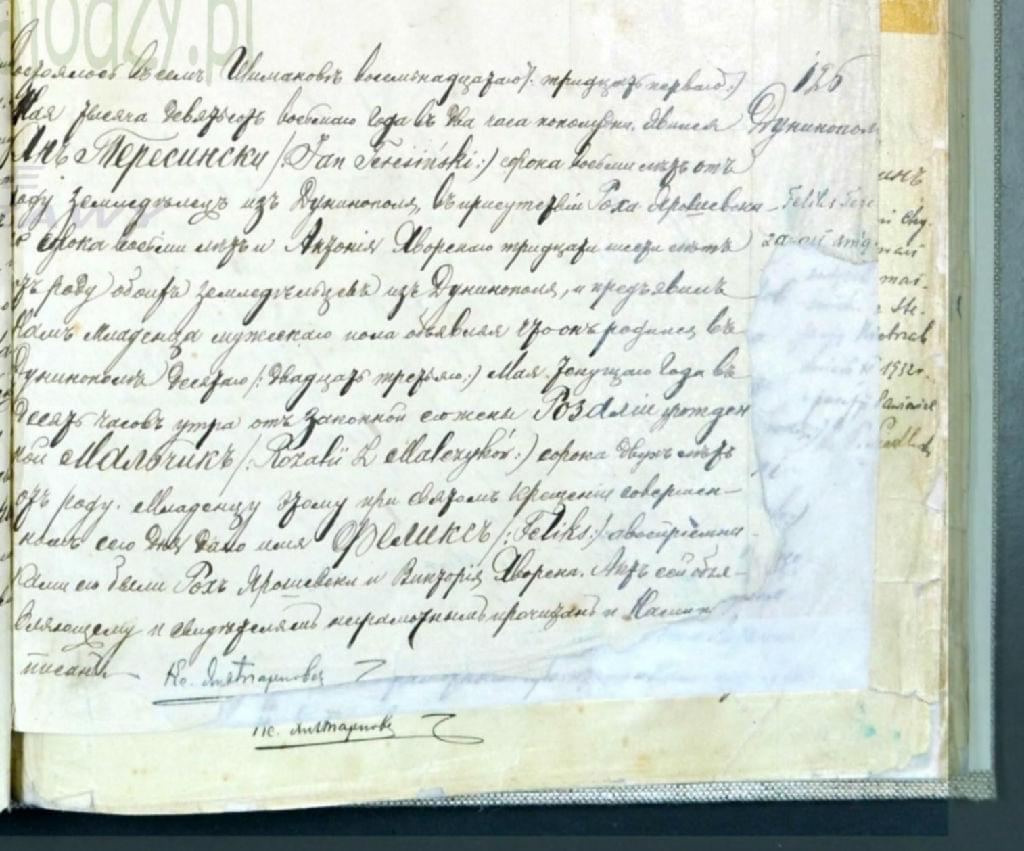 lodzy.pl
состоялось въ селѣ Шимановѣ восемнадцатаго /: тридцать перваго :/ 126
Мая тысяча девятьсотъ восьмаго года въ два часа пополудни. Явился Дунинополь
Янъ Тересински /: Jan Teresiński :/ сорока восьми лѣтъ отъ
роду земледѣлецъ изъ Дунинополя, въ присутствіи Роха Ярошевски Feliks
сорока восьми лѣтъ и Антонія Яворскаго тридцати шести лѣтъ
отъ роду обоихъ земледѣльцевъ изъ Дунинополя, и предъявилъ
Намъ младенца мужескаго пола объявляя что онъ родился въ
Дунинополѣ десятаго /: двадцать третьяго :/ Мая текущаго года въ
десять часовъ утра отъ законной его жены Розаліи урожден
ной Мальчикъ /: Rozalii z Malczyków :/ сорока двухъ лѣтъ
отъ роду. Младенцу этому при святомъ крещеніи совершен-
номъ сего дня дано имя Феликсъ /: Feliks :/ а воспріемни-
ками его были Рохъ Ярошевски и Викторія Яворска. Актъ сей объя-
вляющему и свидѣтелямъ неграмотнымъ прочитанъ и Нами
писанъ
1932 r.